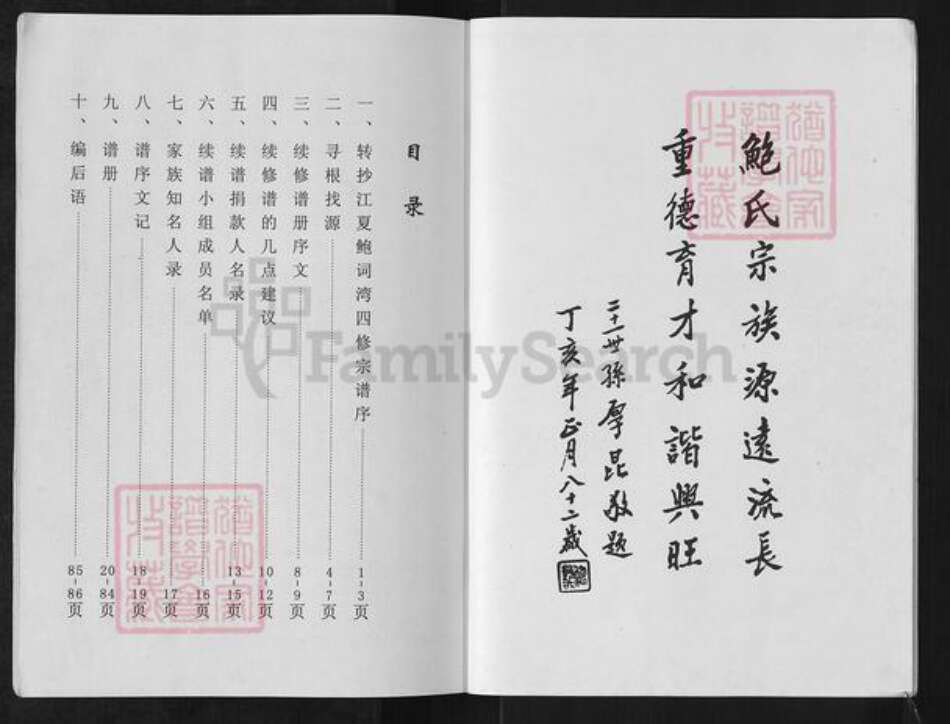 鮑氏宗族源遠流長
重德育才和諧興旺
二十一世孫厚昆敬題
丁亥年正月八十二歲
目录
一、转抄江夏鲍词湾四修宗谱序 1-3页
二、寻根找源 4-7页
三、续修谱册序文 8-9页
四、续修谱的几点建议 10-12页
五、续谱捐款人名录 13-15页
六、续谱小组成员名单 16页
七、家族知名人录 17页
八、谱序文记 18-19页
九、谱册 20-84页
十、编后语 85-86页
FamilySearch